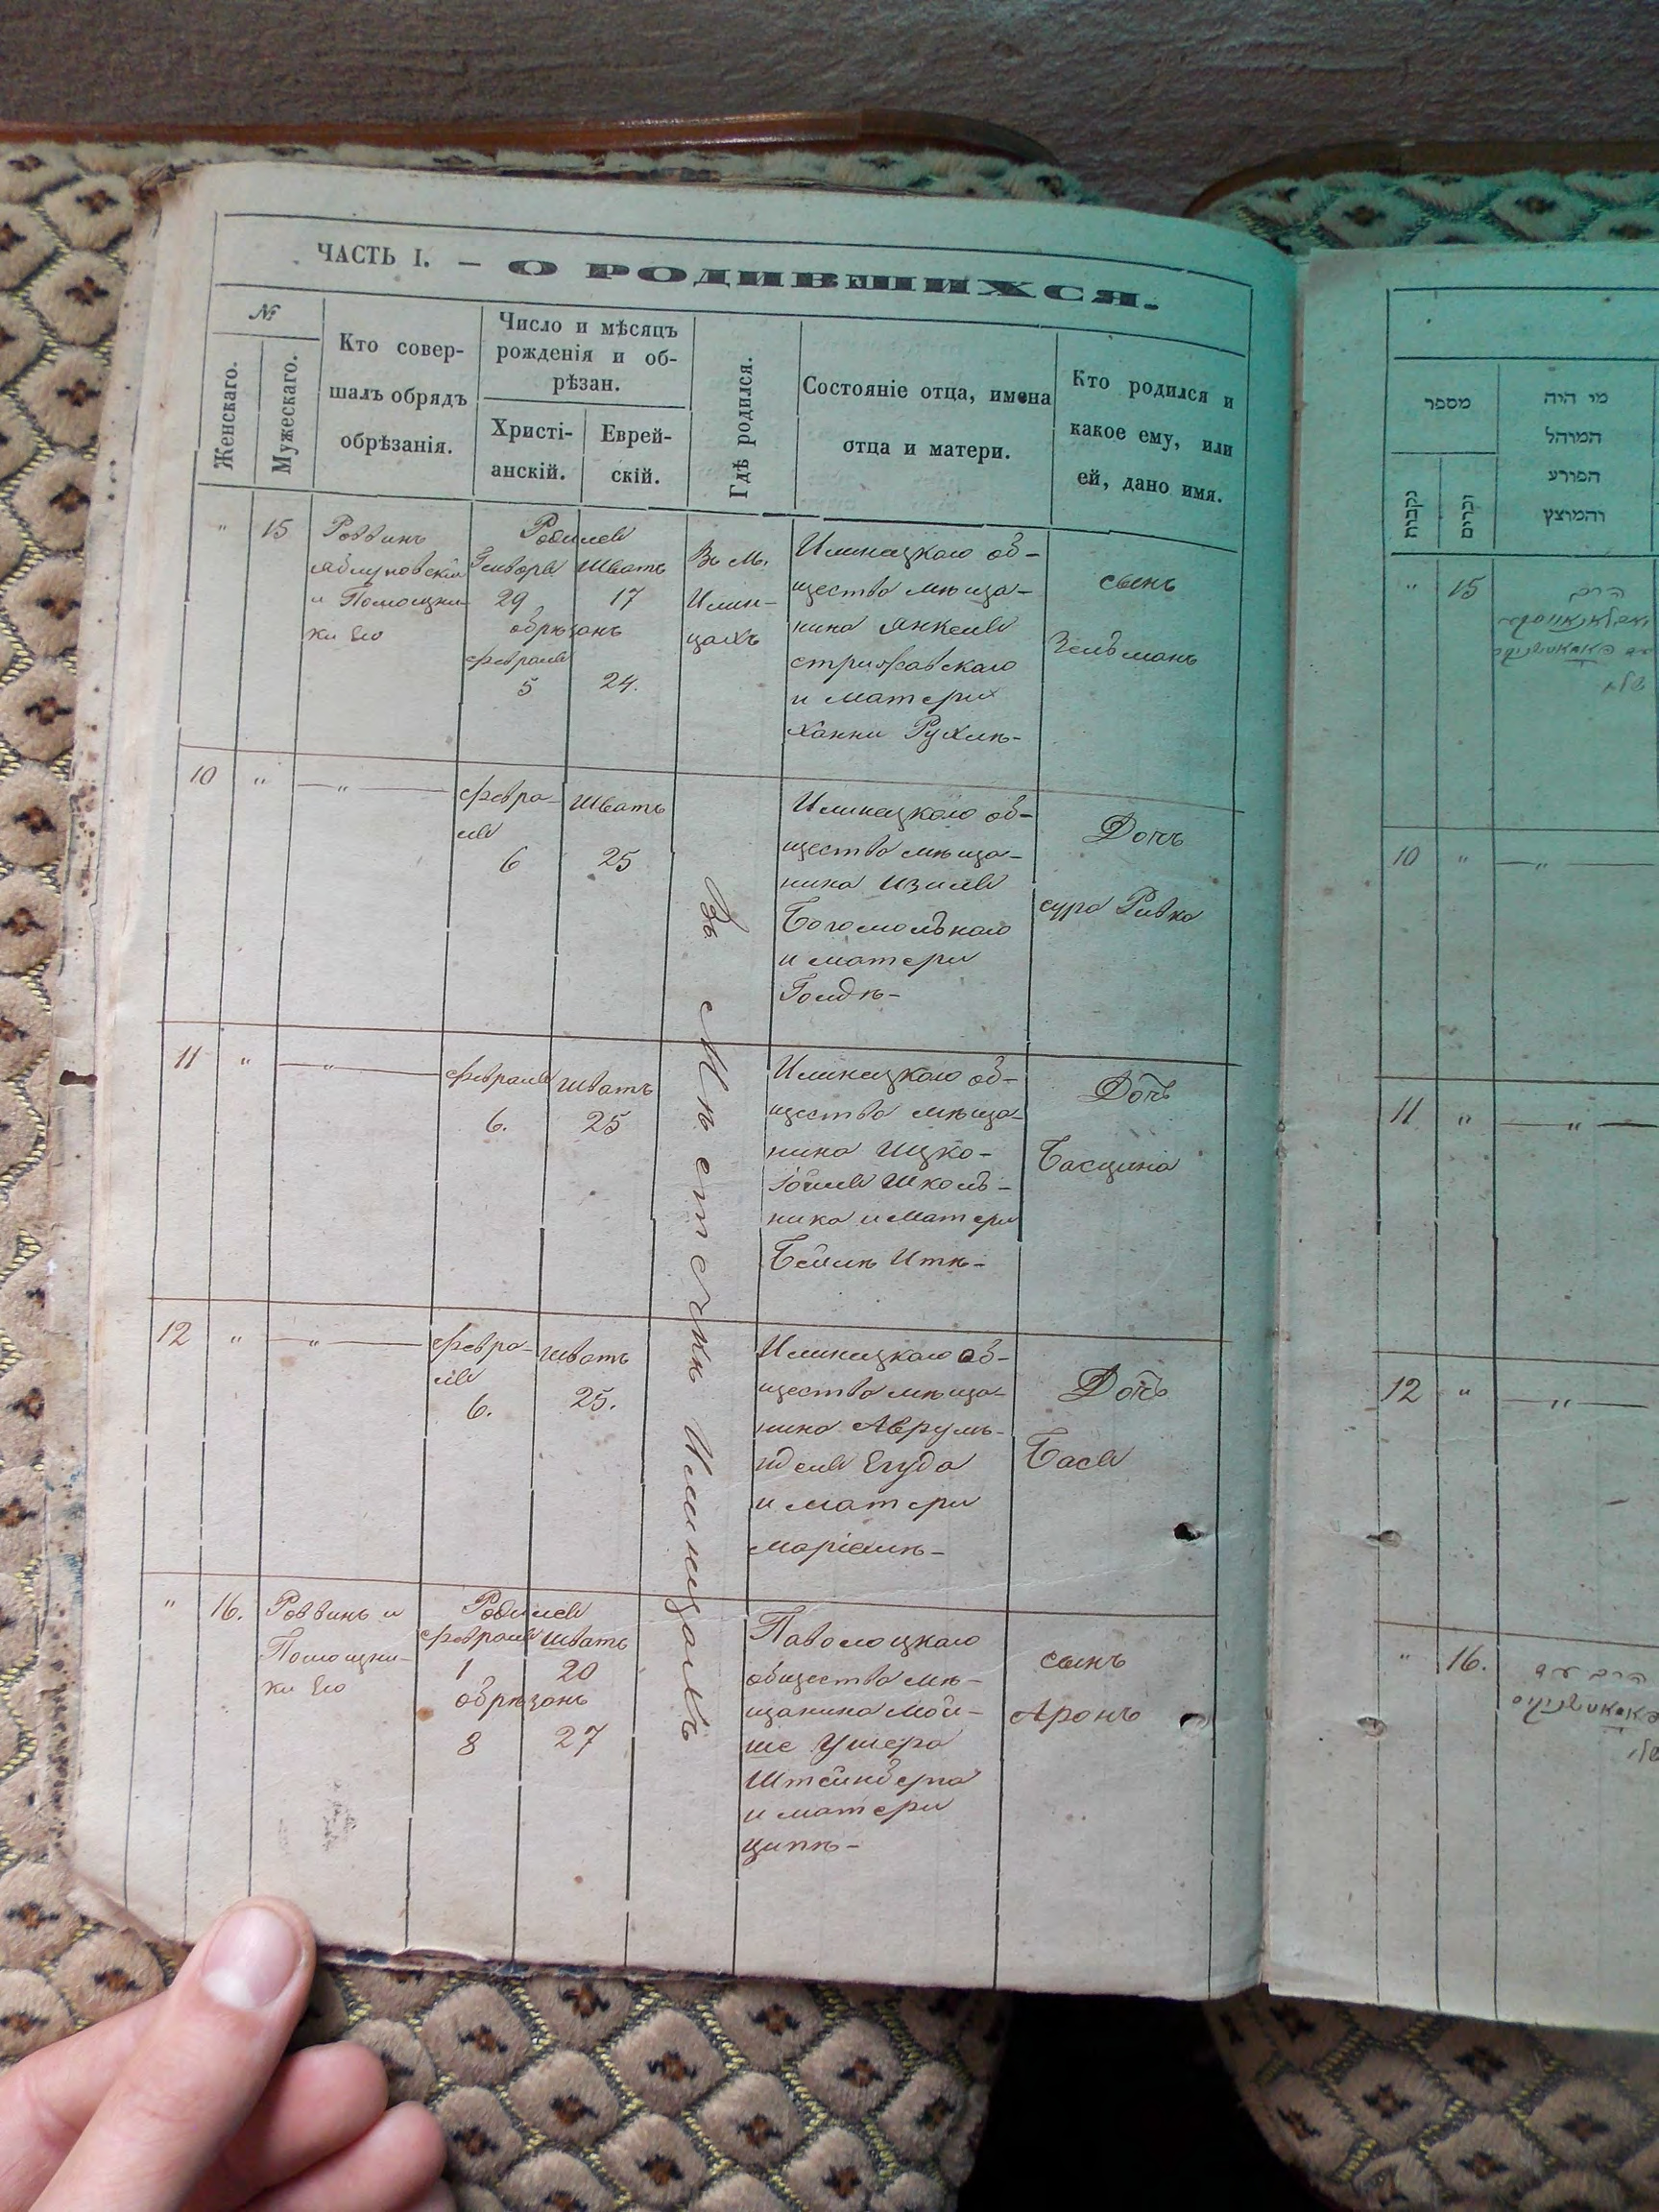 ЧАСТЬ I. — О РОДИВШИХСЯ.
№
Женскаго.
Мужескаго.
Кто совер-
шалъ обрядъ
обрѣзанія.
Число и мѣсяцъ
рожденія и об-
рѣзан.
Христі-
анскій.
Еврей-
скій.
Гдѣ родился.
Состояніе отца, имена
отца и матери.
Кто родился и
какое ему, или
ей, дано имя.
" 15
Роввинъ
Яблуновскій
и Помощни-
ки Его
Родился
Генваря Шватъ
29 17
обрѣзанъ
февраля
5 24.
Въ М.
Илин-
цахъ
Илинецкаго об-
щества мѣща-
нина Янкеля
Стрижавскаго
и матери
Ханни Рухлѣ-
сынъ
Зельманъ
10 " — " —
февра-
ля
6
Шватъ
25
Илинецкаго об-
щества мѣща-
нина Изиля
Богомольнаго
и матери
Голдѣ-
Дочь
сура Ривка
11 " — " —
февраля
6.
Шватъ
25
Илинецкаго об-
щества мѣща-
нина Ицко-
Школь-
ника и матери
Бейлѣ Иткѣ-
Дочь
Басшина
12 " — " —
февра-
ля
6.
Шватъ
25.
Илинецкаго об-
щества мѣща-
нина Аврумъ-
и матери
Маріемѣ-
Дочь
Бася
Въ Мѣстечкѣ Илинцахъ
" 16.
Роввинъ и
Помощни-
ки Его
Родился
февраля Шватъ
1 20
обрѣзанъ
8 27
Паволоцкаго
общества мѣ-
щанина Мой-
ше Ушера
Штейнберга
и матери
Ципѣ-
сынъ
Аронъ
מספר
נקבות
זכרים
מי היה
המוהל
הפורע
והמוצץ
" 15
10 " — " —
11 " — " —
12 " — " —
" 16.